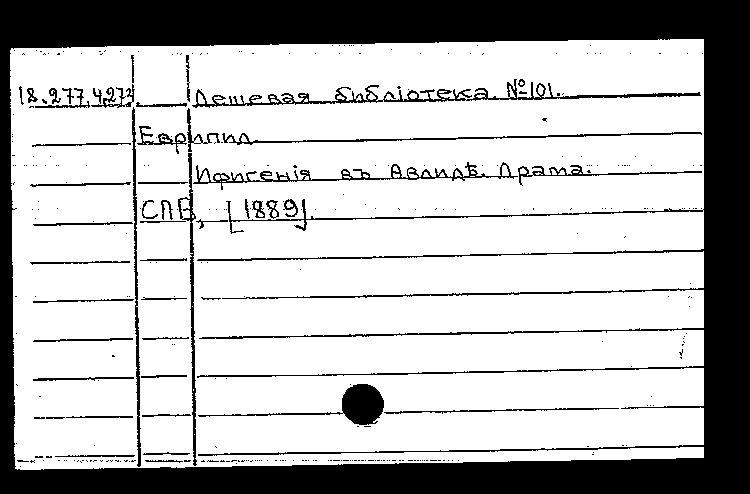 18.277.4.273 Дешевая библіотека №101.
Еврипид.
Ифигенія въ Авлидѣ. Драма.
СПБ, [1889].